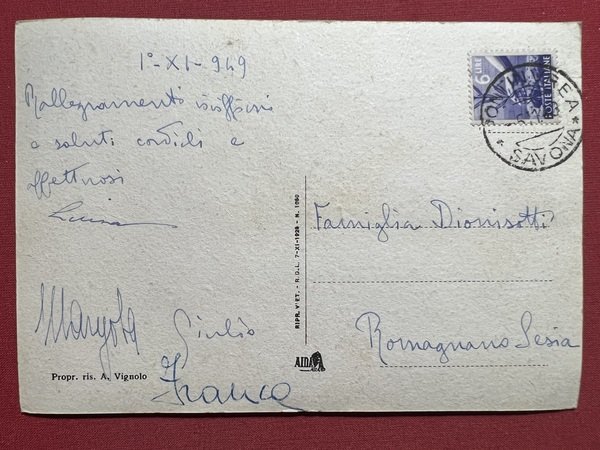 1°-XI-949
Rallegramenti
e saluti cordiali e
affettuosi
Luisa
Margota
Giulio
Franca
Propr. ris. A. Vignolo
RIPR. VIET. - R.D.L. 7-XI-1925 - N. 1950
AIDA
6 LIRE
POSTE ITALIANE
SAVONA
Famiglia Dionisotti
Romagnano Sesia